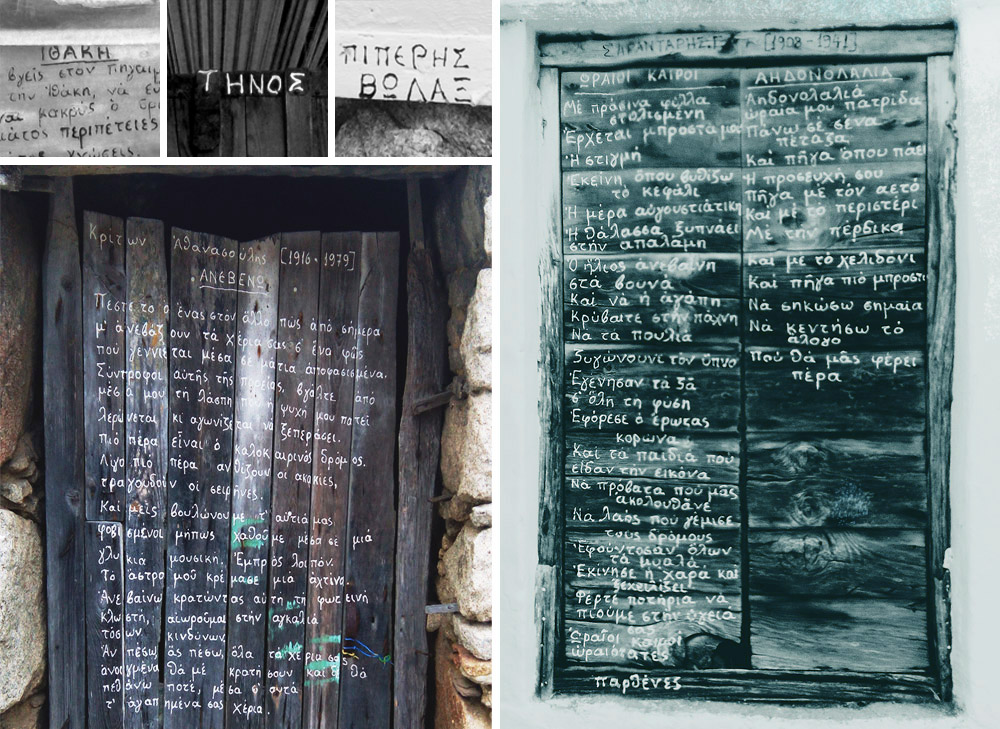 ΙΘΑΚΗ
βγεῖς στὸν πηγαιμ
την Ἰθάκη, νὰ εὔ
ναι μακρύς ὁ δρό
μάτος περιπέτειες
γνώσεις.
ΤΗΝΟΣ
ΠΙΠΕΡΗΣ
ΒΩΛΑΞ
Κρίτων Ἀθανασούλης [1916-1979]
ΑΝΕΒΕΝΩ
Πέστε το ὁ ἕνας στὸν ἄλλο πὼς ἀπὸ σήμερα
μ' ἀνεβάζουν τὰ χέρια σας σ' ἕνα φῶς
ποὺ γεννιέται μέσα σὲ μάτια ἀποφασισμένα.
Σύντροφοι αὐτῆς τῆς πορείας, βγάλτε ἀπὸ
μέσα μου τὴ λάσπη ποὺ ἡ ψυχή μου πατεῖ
λερώνεται κι ἀγωνίζεται νὰ ξεπεράσει.
Πιὸ πέρα εἶναι ὁ καλοκαιρινὸς δρόμος.
Λίγο πιὸ πέρα ἀνθίζουν οἱ ἀκακίες,
τραγουδοῦν οἱ σειρῆνες.
Καὶ μεῖς βουλώνουμε τ' αὐτιά μας
φοβισμένοι μήπως χαθοῦμε μέσα σὲ μιὰ
γλυκιὰ μουσική. Ἐμπρὸς λοιπόν.
Τὸ ἄστρο μοῦ κρέμασε μιὰ ἀχτίνα.
Ἀνεβαίνω κρατώντας αὐτὴ τὴ φωτεινὴ
κλωστή, αἰωροῦμαι στὴν ἀγκαλιὰ
τόσων κινδύνων.
Ἂν πέσω, ἂς πέσω, ὅλα τὰ χέρια σας
ἀνοιγμένα θὰ μὲ κρατήσουν καὶ θὰ
πεθάνω ποτέ, μέσα σ' αὐτὰ
τ' ἀγαπημένα σας χέρια.
ΣΑΡΑΝΤΑΡΗΣ Γ. [1908-1941]
ΩΡΑΙΟΙ ΚΑΙΡΟΙ
Μὲ πράσινα φύλλα
στολισμένη
Ἔρχεται μπροστά μα
Ἡ στιγμή
Ἐκείνη ὅπου βυθίζω
τὸ κεφάλι
Ἡ μέρα αὐγουστιάτικη
Ἡ θάλασσα ξυπνάει
στὴν ἀπαλάμη
Ὁ ἥλιος ἀνεβαίνη
στὰ βουνά
Καὶ νὰ ἡ ἀγάπη
Κρύβαιτε στὴν πάχνη
Νὰ τὰ πουλιά
Ζυγώνουνε τὸν ὕπνο
Ἐγένησαν τὰ ζᾶ
σ' ὅλη τη φύση
Ἐφόρεσε ὁ ἔρωτας
κορώνα
Καὶ τὰ παιδιὰ ποὺ
εἶδαν τὴν εἰκόνα
Νὰ πρόβατα ποὺ μᾶς
ἀκολουθᾶνε
Νὰ λαὸς ποὺ γέμισε
τοὺς δρόμους
Ἐφούντοσαν ὅλων
τὰ μυαλά
Ἐκίνησε ἡ χαρὰ καὶ
ξεχειλίζει
Φέρτε ποτήρια νὰ
πιοῦμε στὴν ὑγειά
σας
Ὡραῖοι καιροὶ
ὡραιότατες
παρθένες
ΑΗΔΟΝΟΛΑΛΙΑ
Ἀηδονολαλιά
ὡραία μου πατρίδα
Πάνω σὲ σένα
πέταξα
Καὶ πῆγα ὅπου πάει
Ἡ προσευχή σου
Πῆγα μὲ τὸν ἀετό
Καὶ μὲ τὸ περιστέρι
Μὲ τὴν πέρδικα
Καὶ μὲ τὸ χελιδόνι
Καὶ πῆγα πιὸ μπροστά
Νὰ σηκώσω σημαία
Νὰ κεντήσω τὸ
ἄλογο
Ποὺ θὰ μᾶς φέρει
πέρα